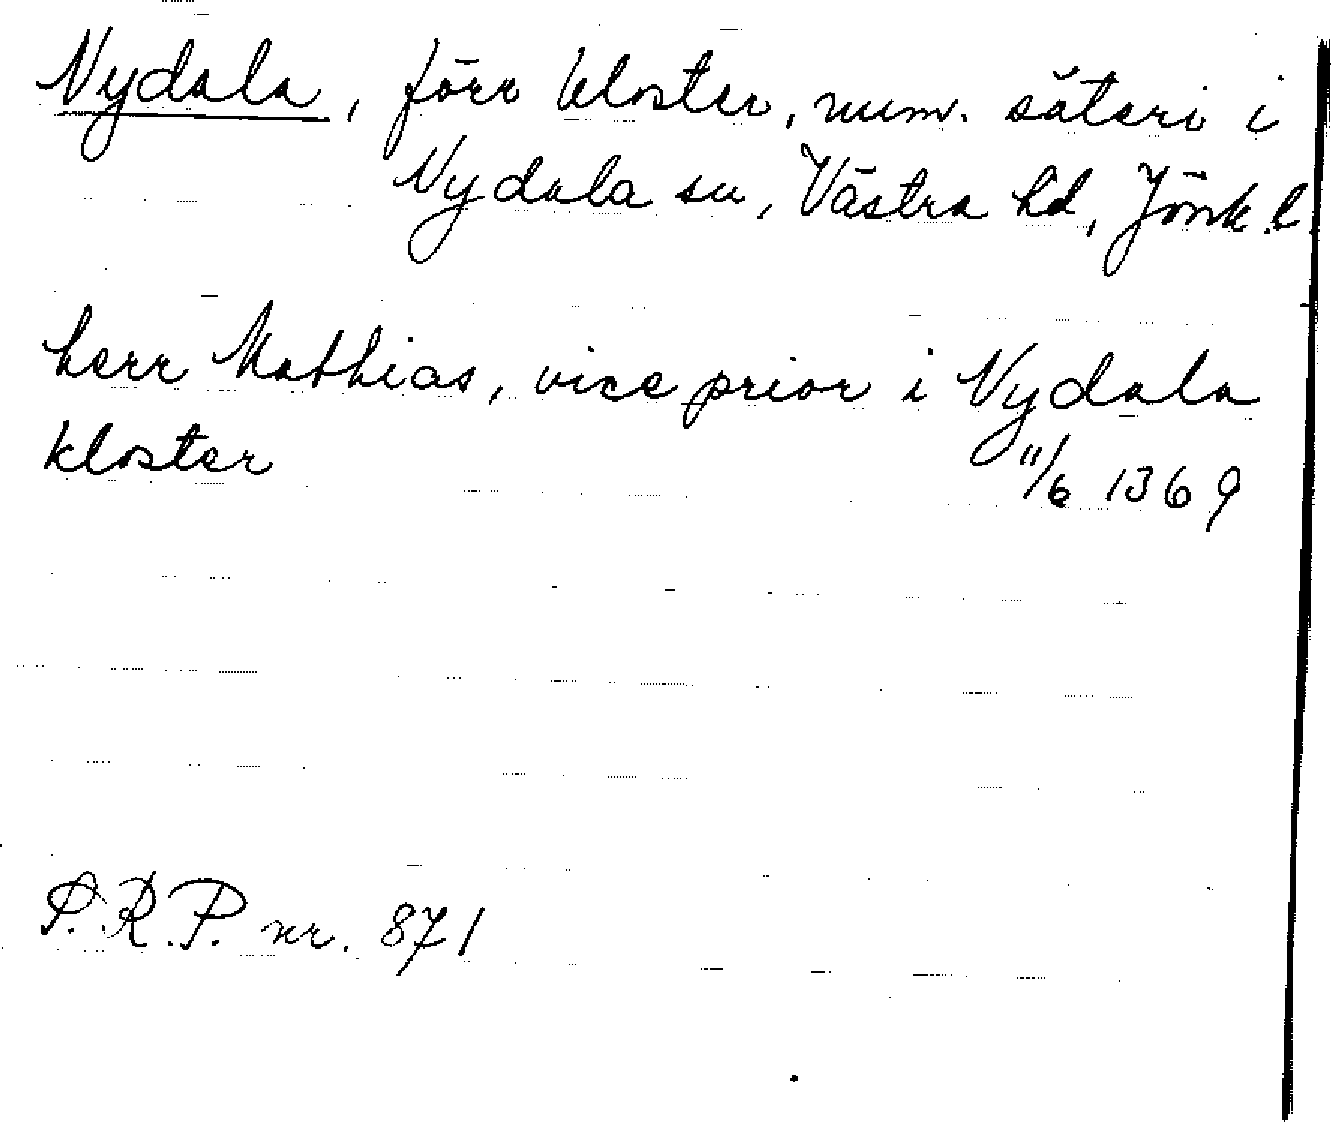 Nydala, förr kloster, num. säteri i
Nydala sn, Västra hd, Jönk.l.
herr Mathias, vice prior i Nydala
kloster 11/6 1369
P.R.P. nr. 871